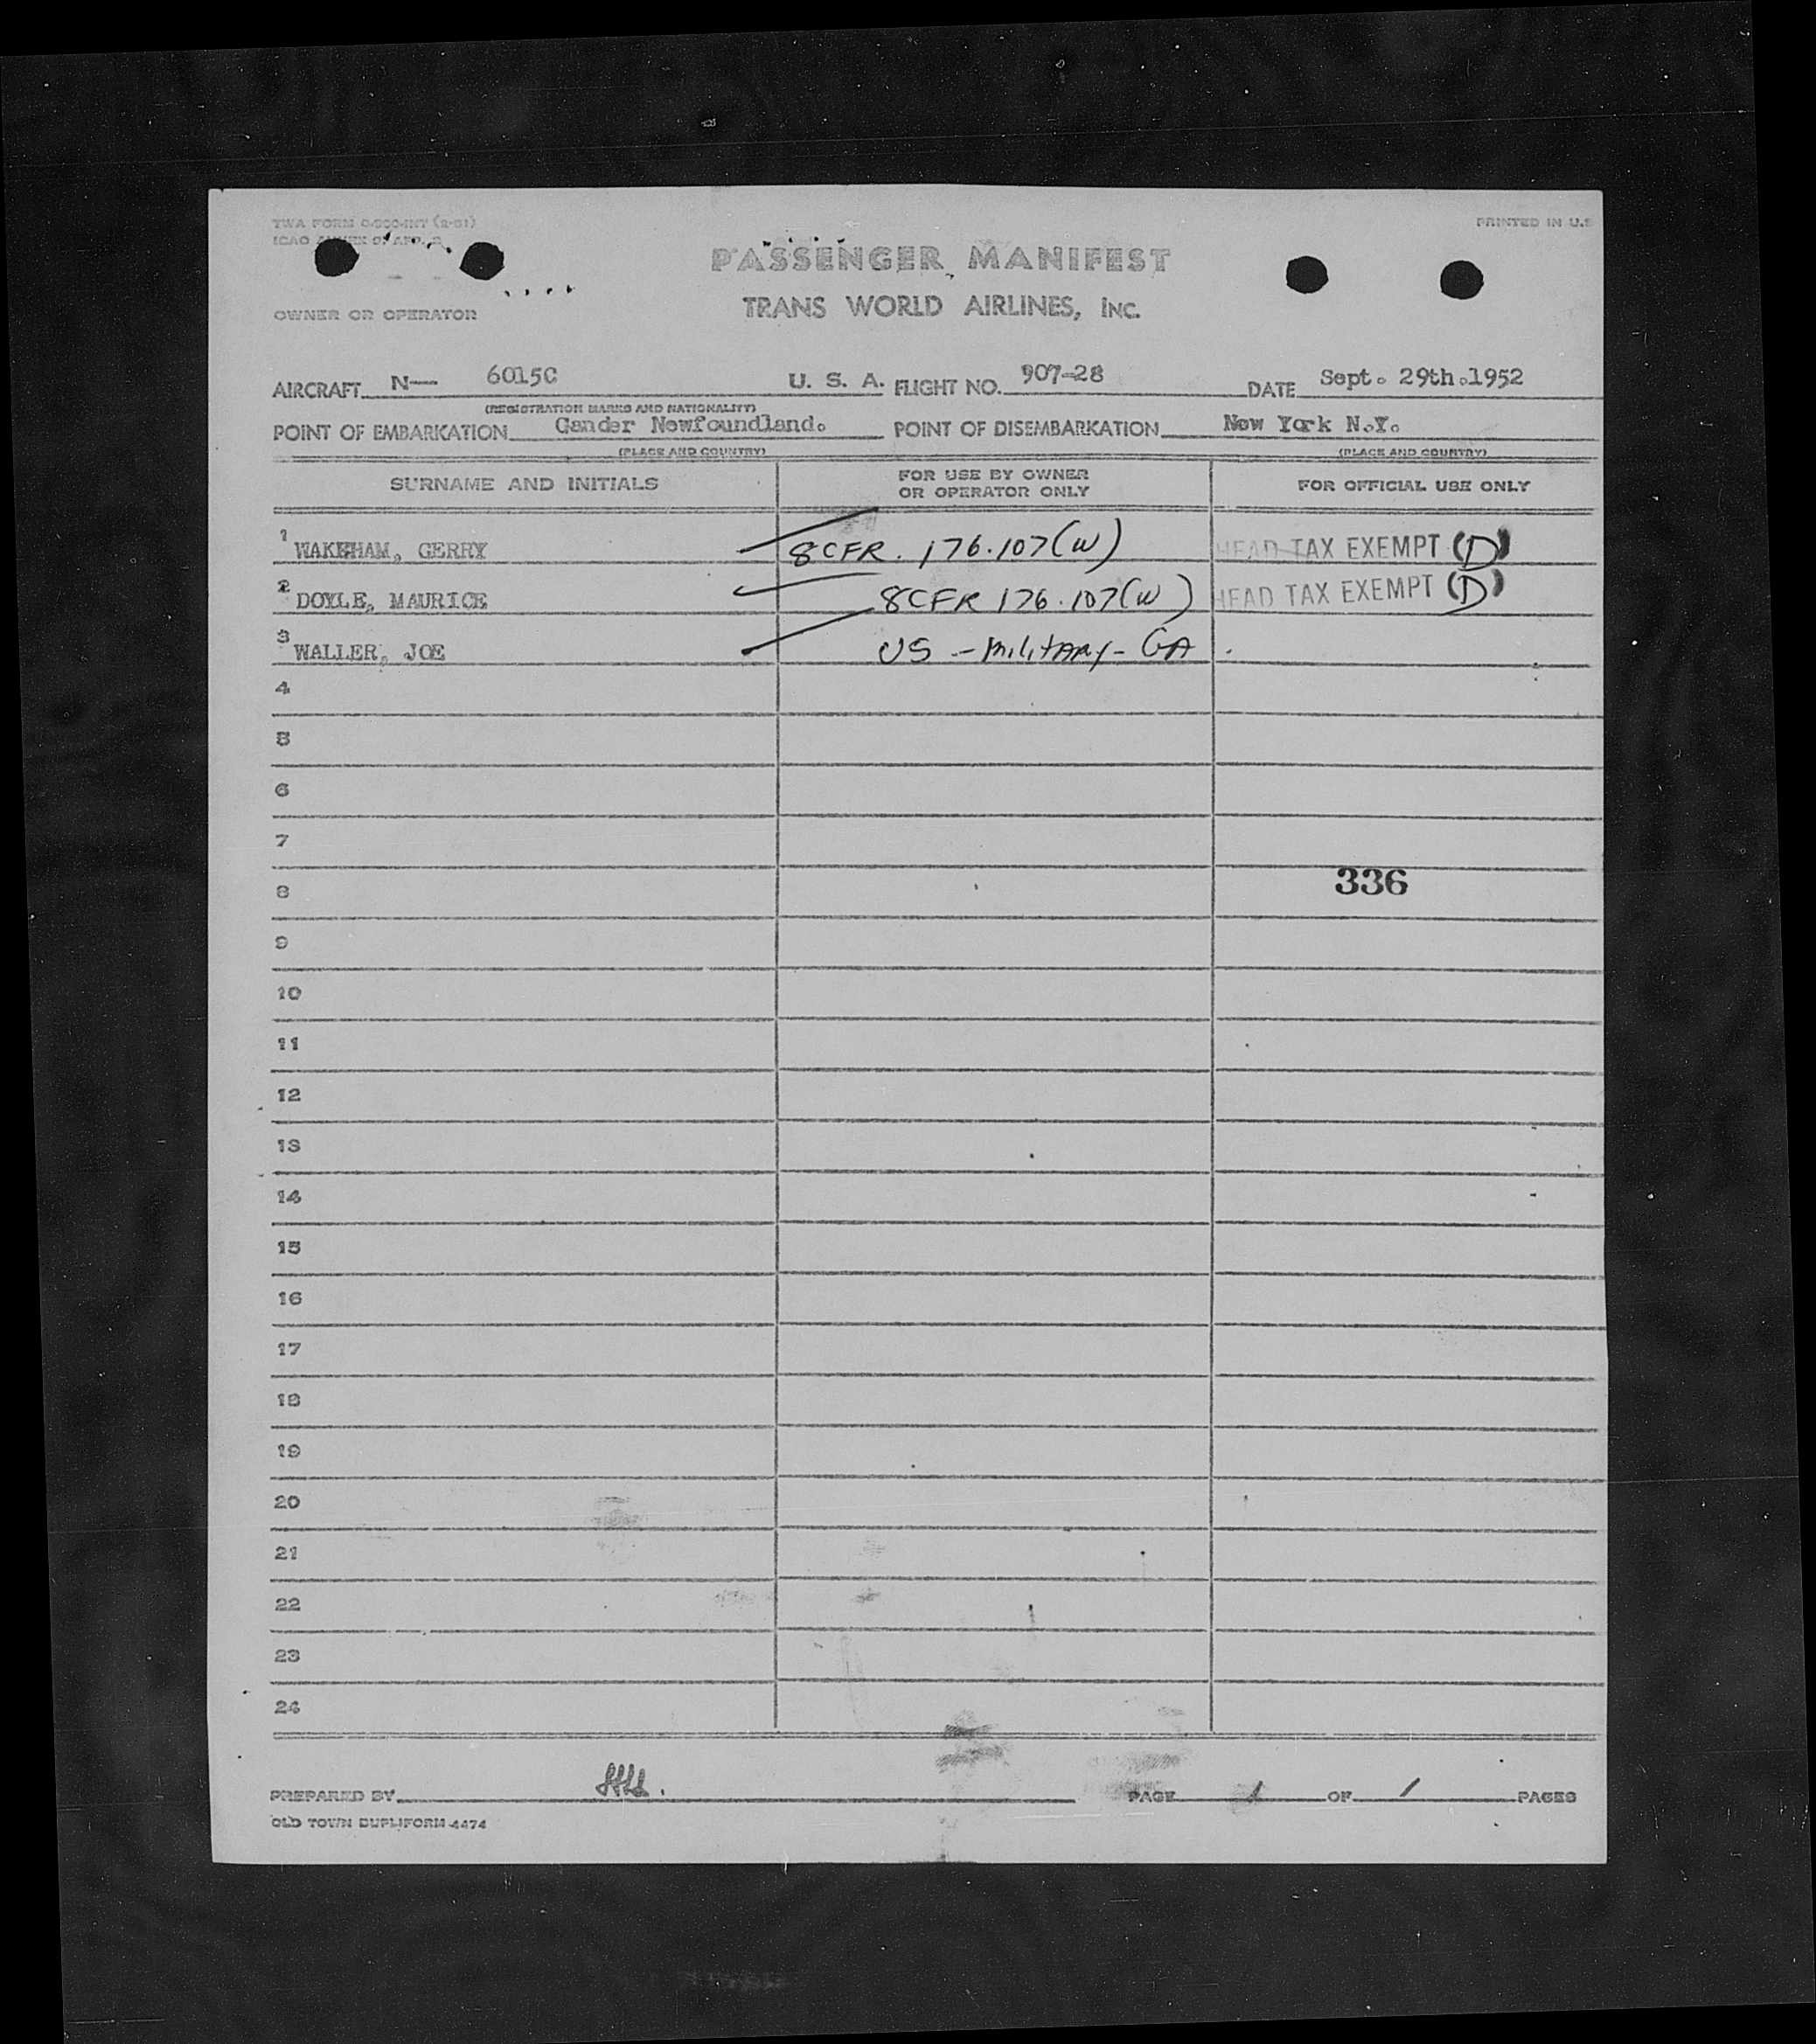 TWA FORM
PRINTED IN U.S
ICAO ANNEX 9, APP.
PASSENGER MANIFEST
TRANS WORLD AIRLINES, INC.
OWNER OR OPERATOR
AIRCRAFT N— 6015C U. S. A. FLIGHT NO. 907-28 DATE Sept. 29th.1952
(REGISTRATION MARKS AND NATIONALITY)
POINT OF EMBARKATION Gander Newfoundland. POINT OF DISEMBARKATION New York N.Y.
(PLACE AND COUNTRY) (PLACE AND COUNTRY)
SURNAME AND INITIALS FOR USE BY OWNER OR OPERATOR ONLY FOR OFFICIAL USE ONLY
1 WAKEHAM, GERRY 8CFR. 176.107(W) HEAD TAX EXEMPT (D)
2 DOYLE, MAURICE 8CFR 176.107(W) HEAD TAX EXEMPT (D)
3 WALLER, JOE US - Military - GA
4
5
6
7
8 336
9
10
11
12
13
14
15
16
17
18
19
20
21
22
23
24
PREPARED BY PAGE 1 OF 1 PAGES
OLD TOWN DUPLIFORM 4474